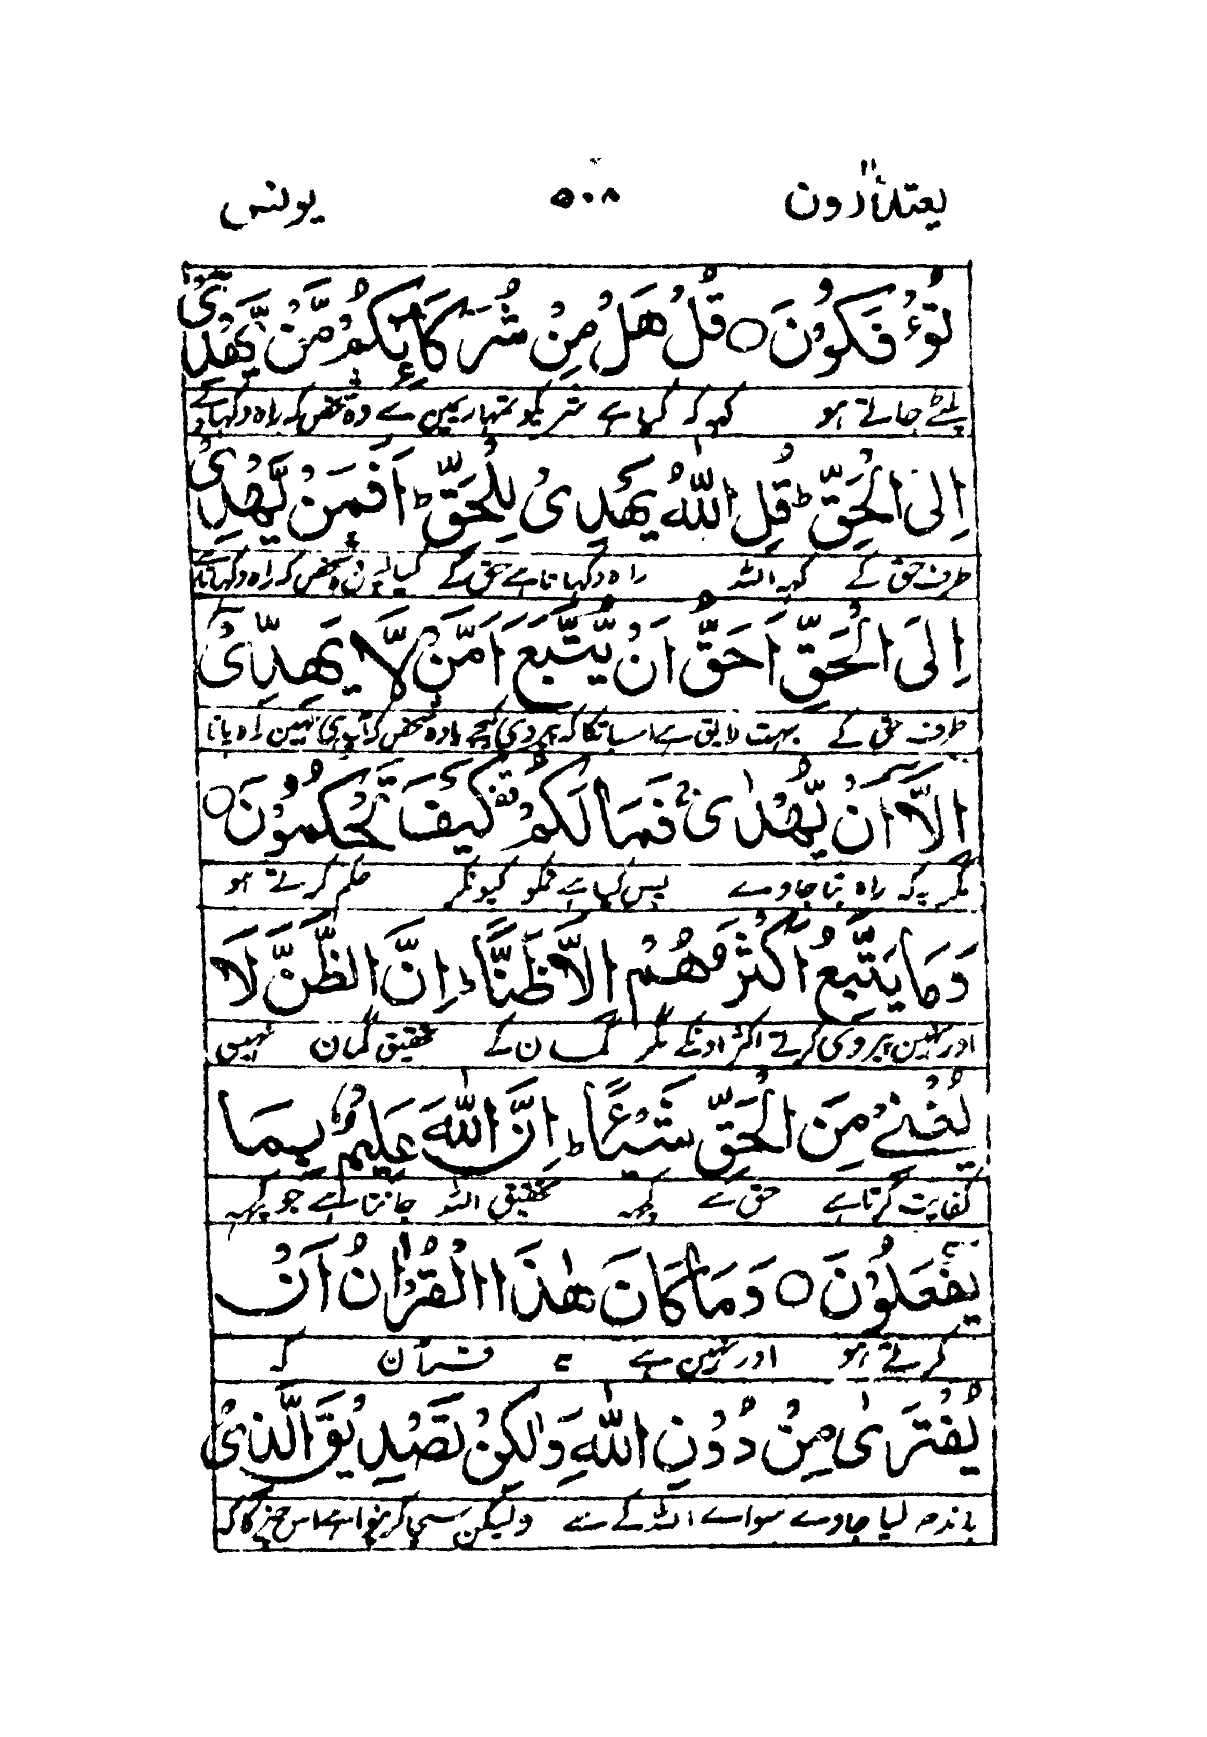 یعتذرون ۵۰۸ یونس
تُؤْفَكُوْنَ ○ قُلْ هَلْ مِنْ شُرَكَآئِكُمْ مَّنْ يَّهْدِىْٓ
پلٹے جاتے ہو کہہ کہ کیا ہے شریکو تمہاریمیں سے وہ شخص کہ راہ دکہاتے
اِلَى الْحَقِّ ؕ قُلِ اللّٰهُ يَهْدِىْ لِلْحَقِّ ؕ اَفَمَنْ يَّهْدِىْٓ
طرف حق کے کہہ اللہ راہ دکہاتا ہے حق کے کیا پس وہ شخص کہ راہ دکہاتا ہے
اِلَى الْحَقِّ اَحَقُّ اَنْ يُّتَّبَعَ اَمَّنْ لَّا يَهِدِّىْٓ
طرف حق کے بہت لایق ہے اسباتکا کہ پیروی کیجے یا وہ شخص کہ آپ ہی نہین راہ پاتا
اِلَّآ اَنْ يُّهْدٰى ۚ فَمَا لَكُمْ كَيْفَ تَحْكُمُوْنَ ○
مگر یہ کہ راہ بتا جاوے پس کیا ہے تمکو کیونکر حکم کرتے ہو
وَمَا يَتَّبِعُ اَكْثَرُهُمْ اِلَّا ظَنًّا ؕ اِنَّ الظَّنَّ لَا
اور نہین پیروی کرتے اکثر اونکے مگر گمان کے تحقیق گمان نہیں
يُغْنِىْ مِنَ الْحَقِّ شَيْئًا ؕ اِنَّ اللّٰهَ عَلِيْمٌۢ بِمَا
کفایت کرتا ہے حق سے کچہہ تحقیق اللہ جانتا ہے جو کچہہ
يَفْعَلُوْنَ ○ وَمَا كَانَ هٰذَا الْقُرْاٰنُ اَنْ
کرتے ہو اور نہین ہے یہ قرآن کہ
يُّفْتَرٰى مِنْ دُوْنِ اللّٰهِ وَلٰكِنْ تَصْدِيْقَ الَّذِىْ
باندہ لیا جاوے سواے اللہ کے سے ولیکن سچی کرنیوا ہے اس چیز کا کہ